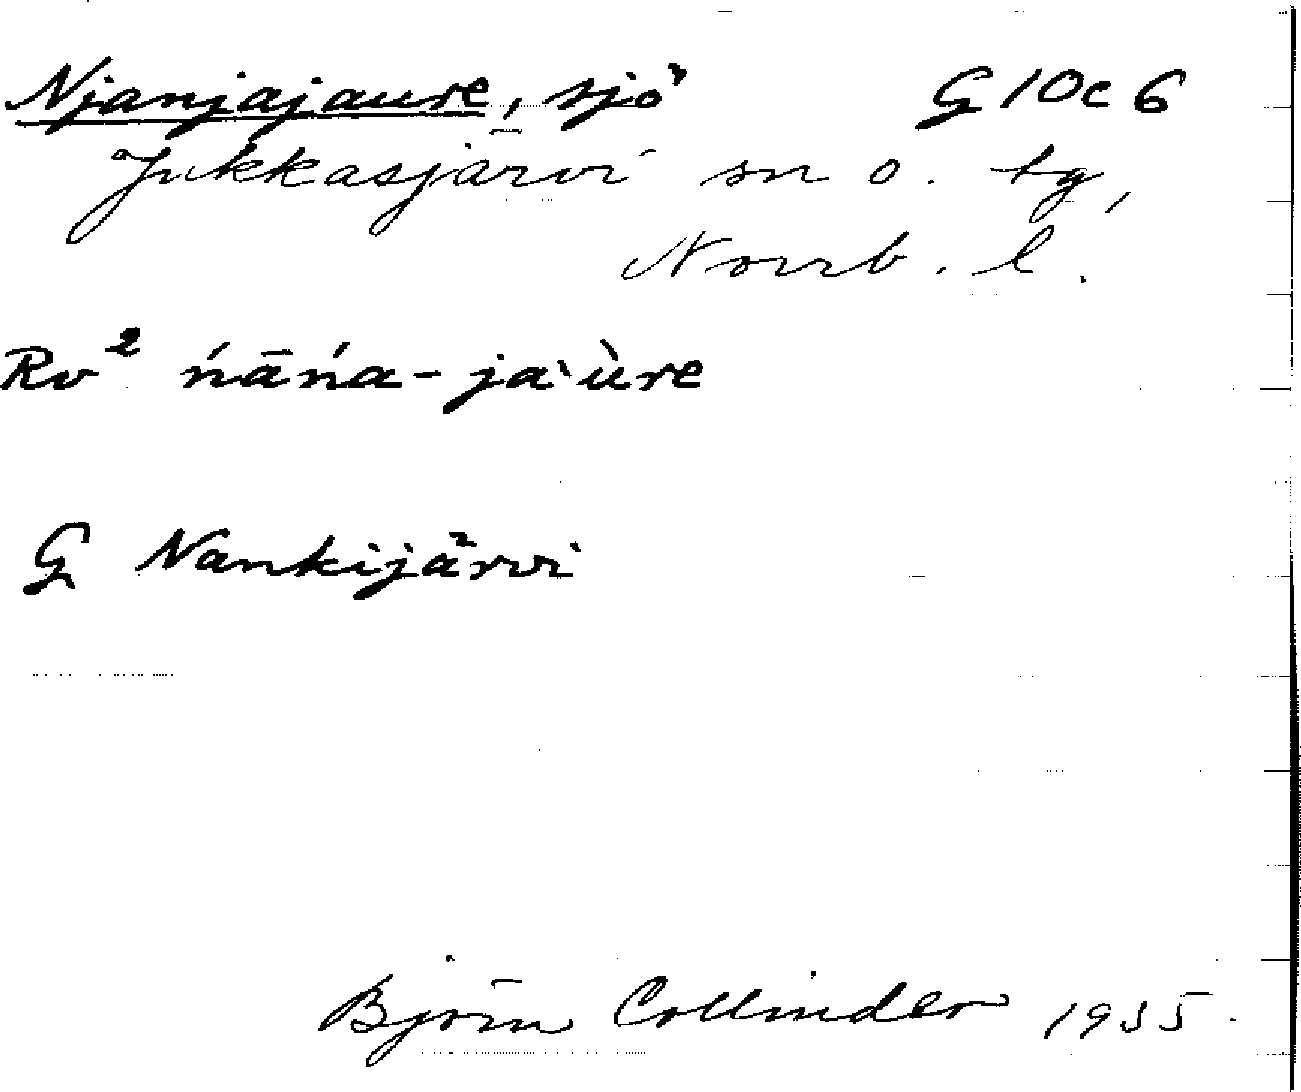 Njanjajaure, sjö G 10c 6
Jukkasjärvi sn o. tg,
Norrb. l.
Rv² ńāńa-ja`ùre
G Nankijärvi
Björn Collinder 1935.